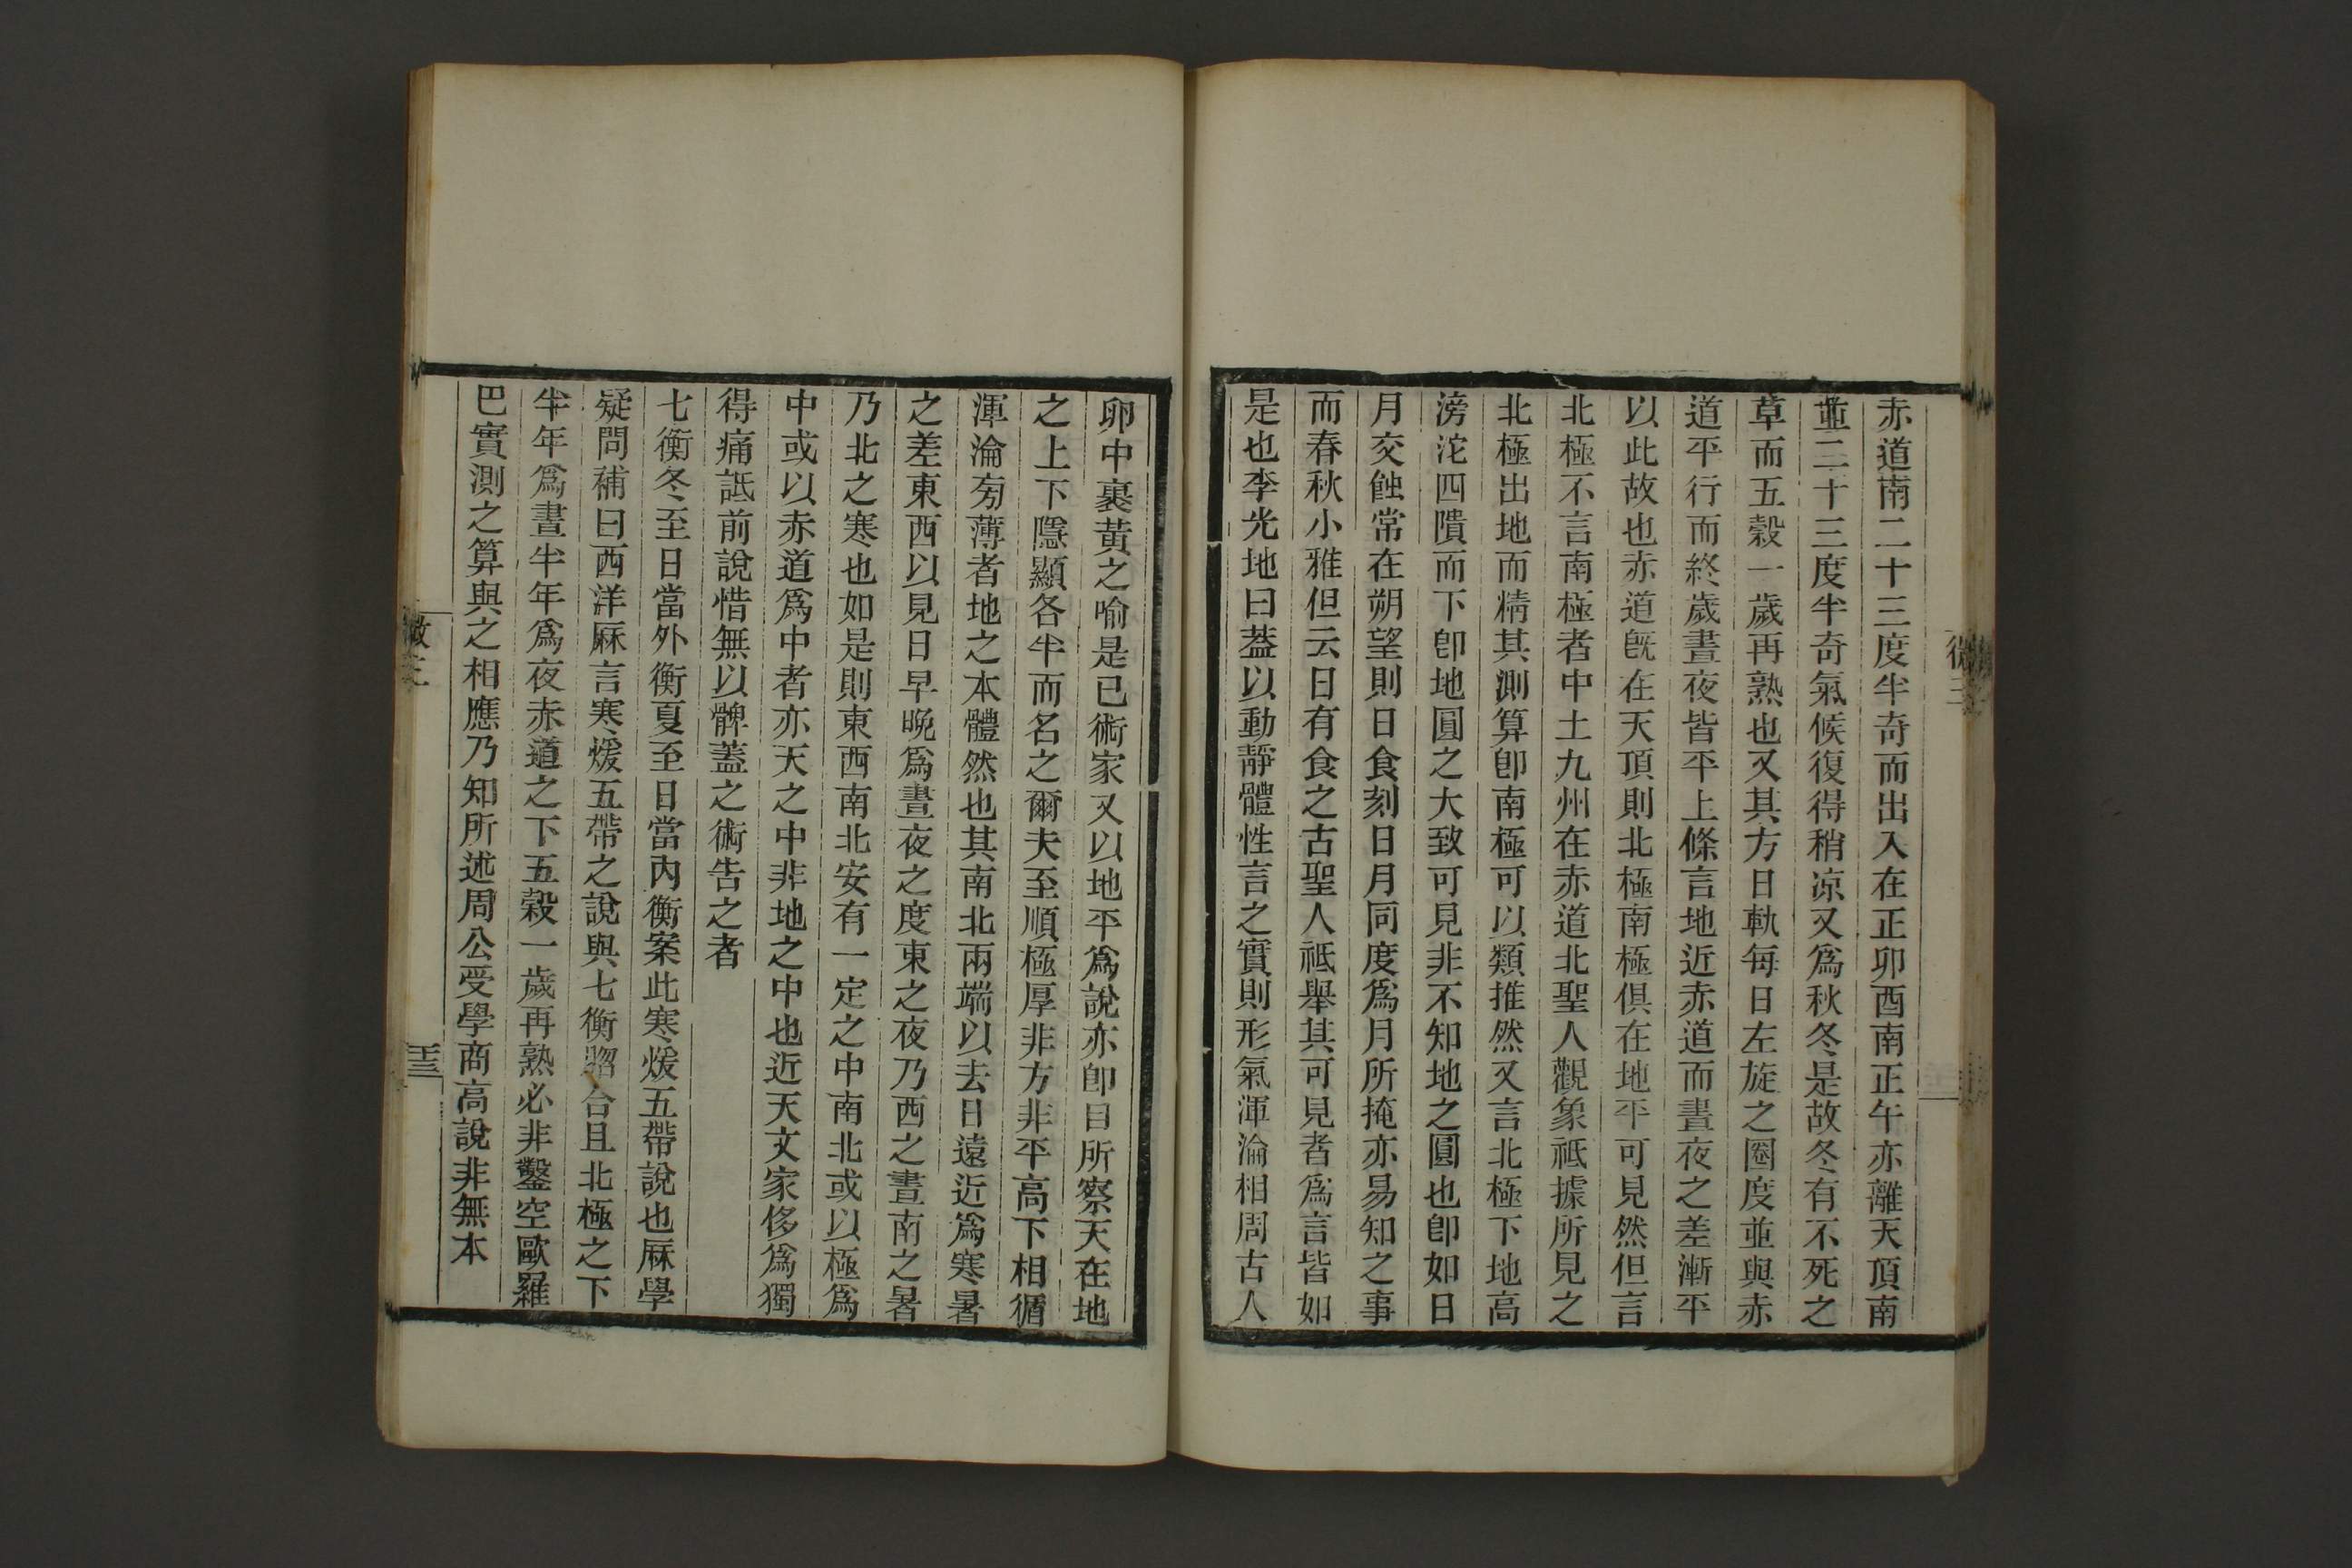 赤道南二十三度半奇而出入在正卯酉南正午亦離天頂南
並二十三度半奇氣候復得稍凉又爲秋冬是故冬有不死之
草而五穀一歲再熟也又其方日軌每日左旋之圈度並與赤
道平行而終歲晝夜皆平上條言地近赤道而晝夜之差漸平
以此故也赤道旣在天頂則北極南極俱在地平可見然但言
北極不言南極者中土九州在赤道北聖人觀象祗據所見之
北極出地而精其測算卽南極可以類推然又言北極下地高
滂沱四隤而下卽地圓之大致可見非不知地之圓也卽如日
月交蝕常在朔望則日食刻日月同度爲月所掩亦易知之事
而春秋小雅但云日有食之古聖人祗舉其可見者爲言皆如
是也李光地曰蓋以動靜體性言之實則形氣渾淪相周古人
卵中裹黃之喻是已術家又以地平爲說亦卽目所察天在地
之上下隱顯各半而名之爾夫至順極厚非方非平高下相循
渾淪旁薄者地之本體然也其南北兩端以去日遠近爲寒暑
之差東西以見日早晚爲晝夜之度東之夜乃西之晝南之暑
乃北之寒也如是則東西南北安有一定之中南北或以極爲
中或以赤道爲中者亦天之中非地之中也近天文家侈爲獨
得痛詆前說惜無以髀蓋之術告之者
七衡冬至日當外衡夏至日當內衡案此寒煖五帶說也厤學
疑問補曰西洋厤言寒煖五帶之說與七衡脗合且北極之下
半年爲晝半年爲夜赤道之下五穀一歲再熟必非鑿空歐羅
巴實測之算與之相應乃知所述周公受學商高說非無本